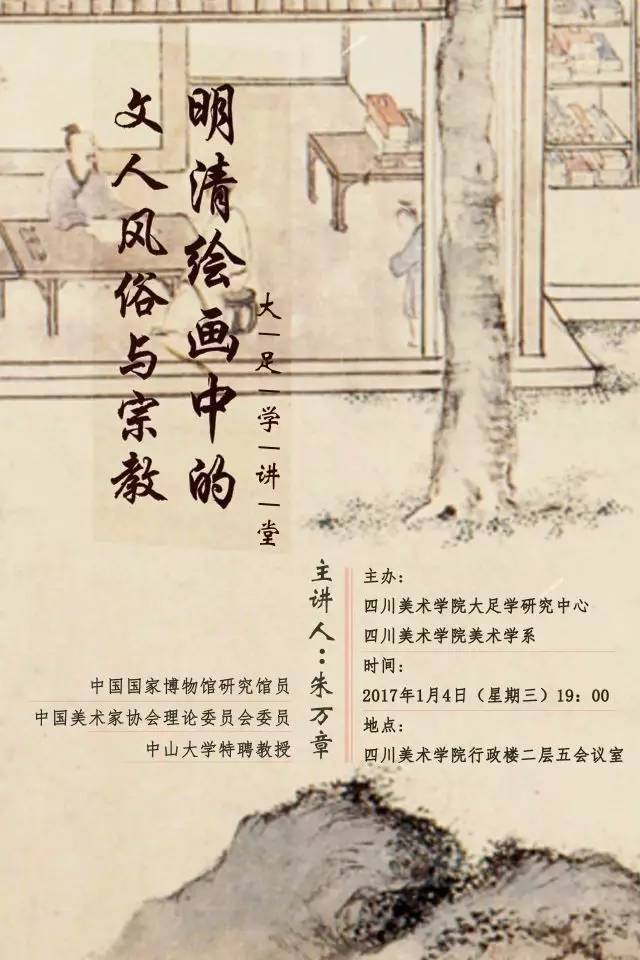 明清绘画中的
文人风俗与宗教
大|足|学|讲|堂
主讲人：朱万章
中国国家博物馆研究馆员
中国美术家协会理论委员会委员
中山大学特聘教授
主办：
四川美术学院大足学研究中心
四川美术学院美术学系
时间：
2017年1月4日（星期三）19：00
地点：
四川美术学院行政楼二层五会议室